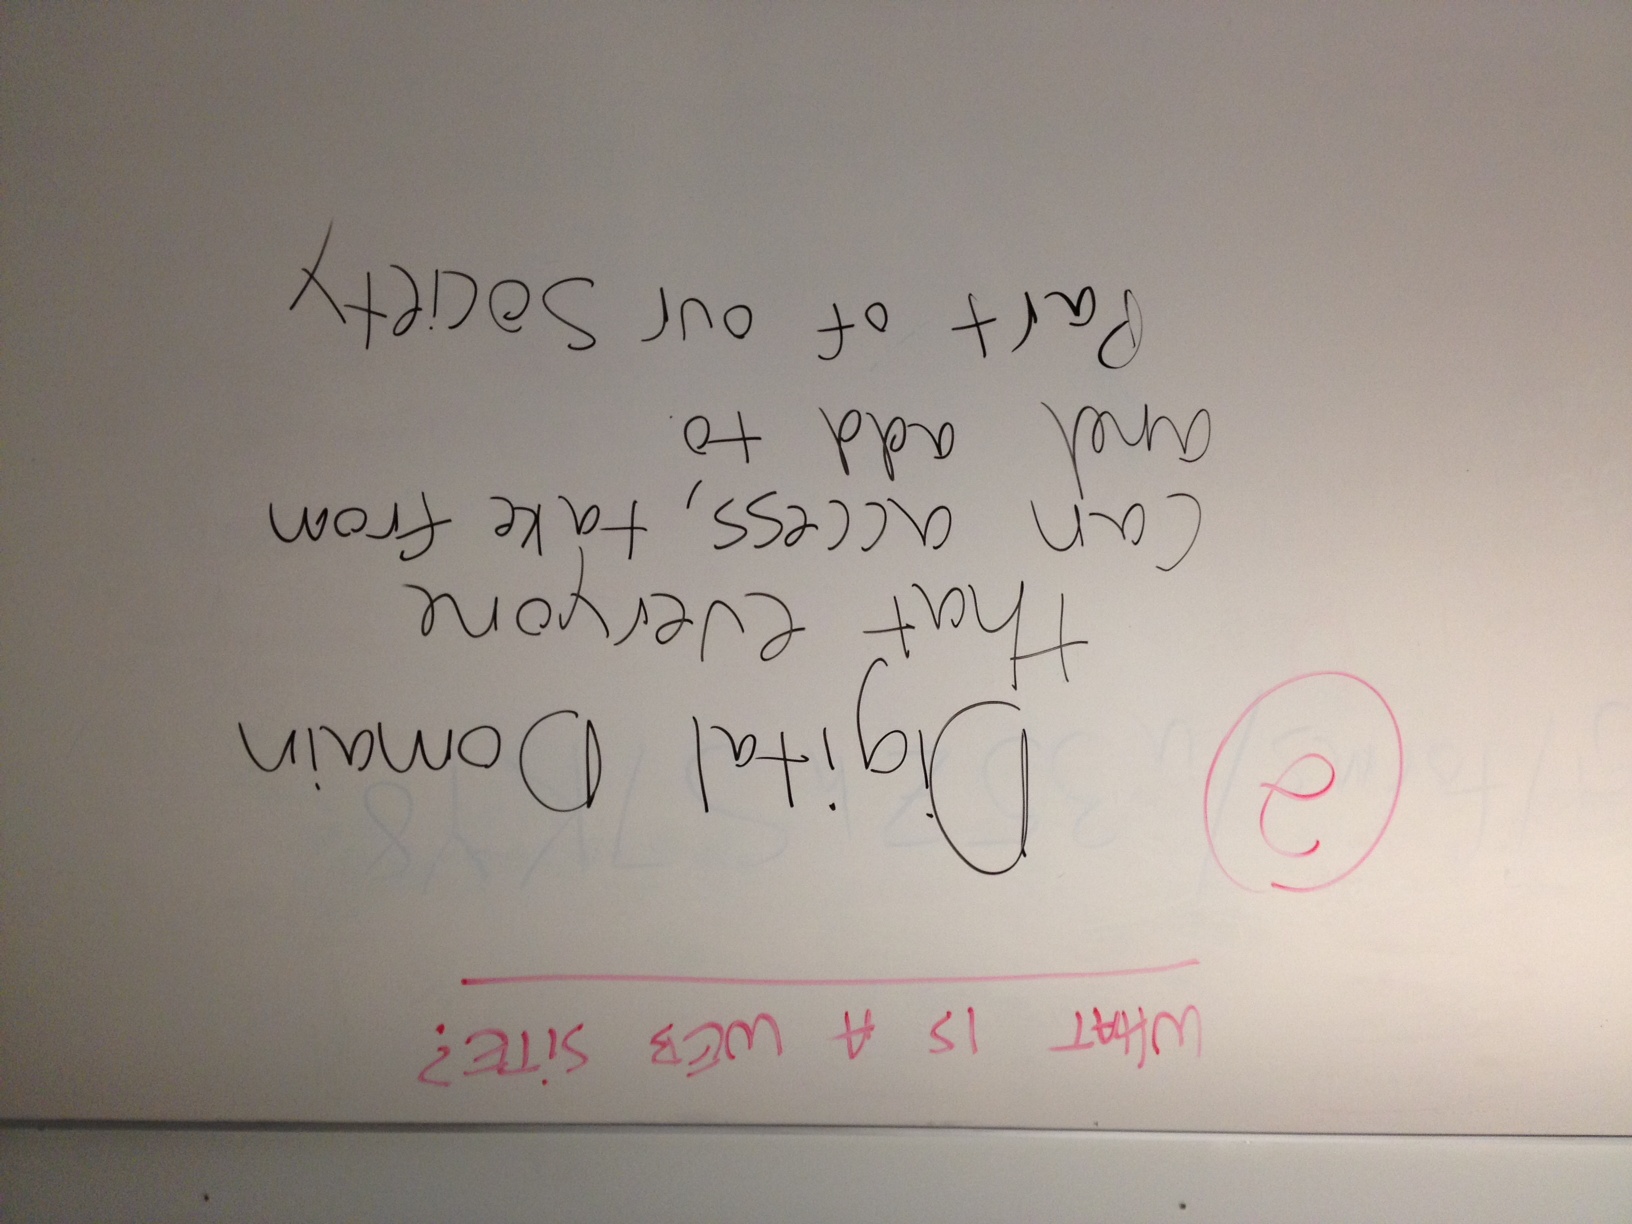 WHAT IS A WEB SiTE?
2
Digital Domain
that everyone
Can access, take from
and add to.
Part of our Society